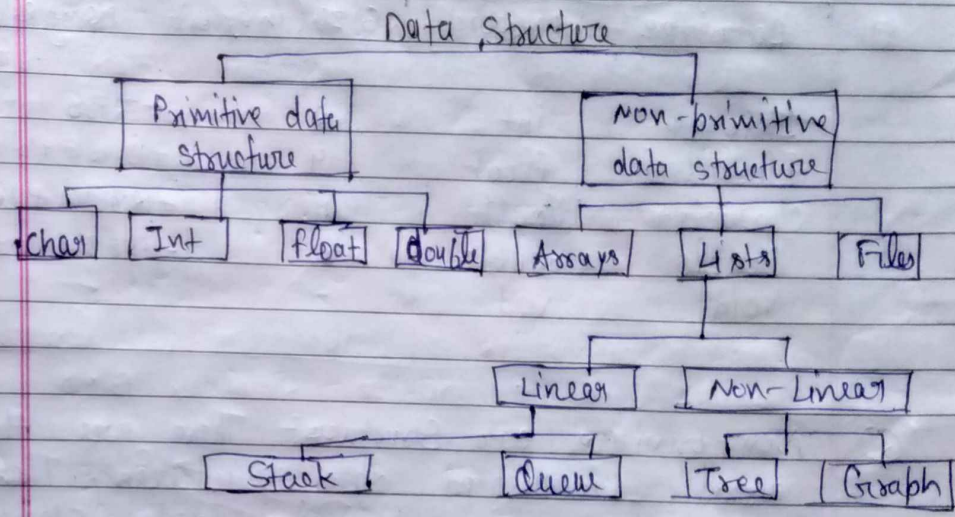 Data Structure
Primitive data
structure
Non-primitive
data structure
Char
Int
float
double
Arrays
Lists
Files
Linear
Non-Linear
Stack
Queue
Tree
Graph